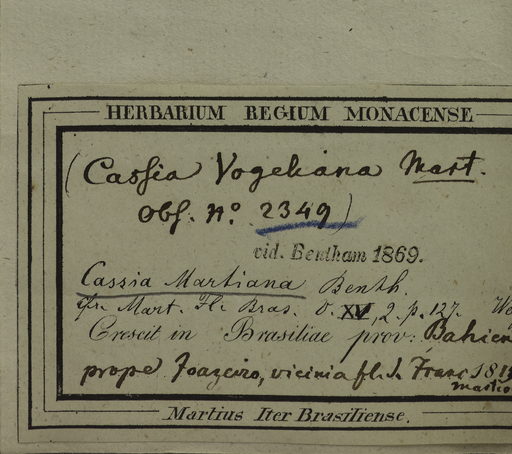 HERBARIUM REGIUM MONACENSE
(Cassia Vogeliana Mart.
Obs. n° 2349)
vid. Bentham 1869.
Cassia Martiana Benth.
cfr. Mart. Fl. Bras. V. XV, 2. p. 127.
Crescit in Brasiliae prov: Bahien
prope Joazeiro, vicinia fl. S. Franc 181
Martio
Martius Iter Brasiliense.